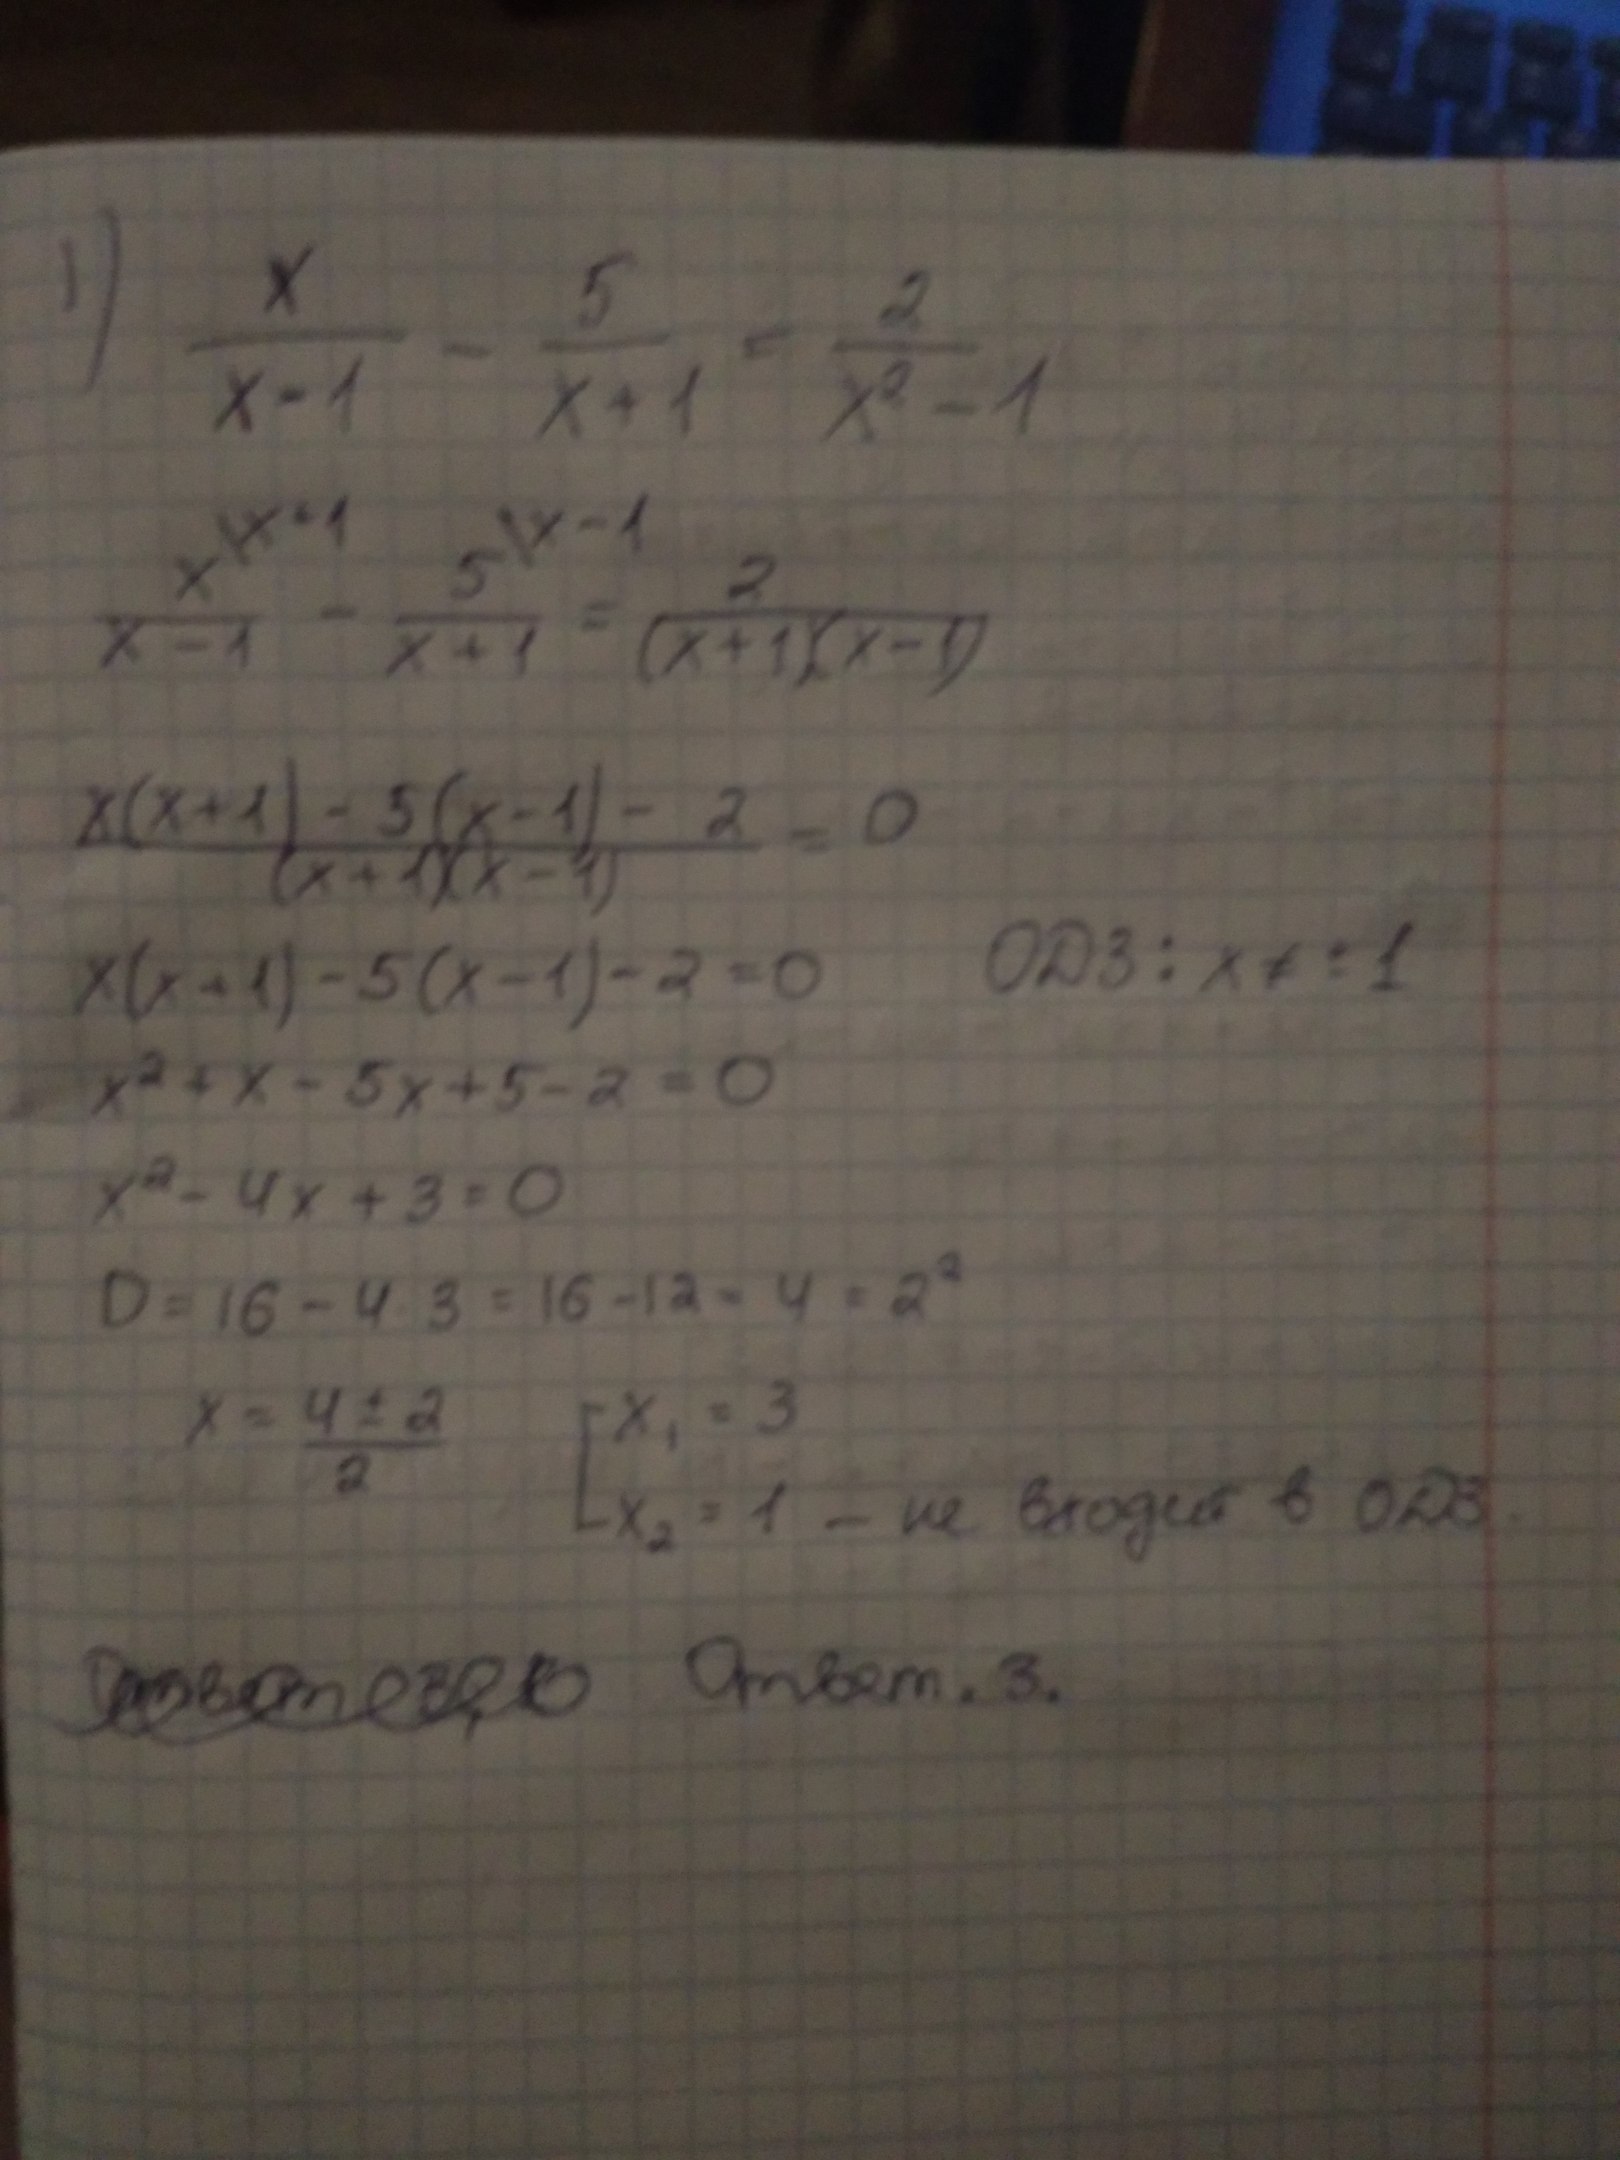 1) x/(x-1) - 5/(x+1) = 2/(x²-1)
x\x+1/(x-1) - 5\x-1/(x+1) = 2/((x+1)(x-1))
(x(x+1)-5(x-1)-2)/((x+1)(x-1)) = 0
x(x+1)-5(x-1)-2=0 ОДЗ: x≠±1
x²+x-5x+5-2=0
x²-4x+3=0
D=16-4·3=16-12=4=2²
x=(4±2)/2 [x₁=3
x₂=1 – не входит в ОДЗ.
Ответ. 3.